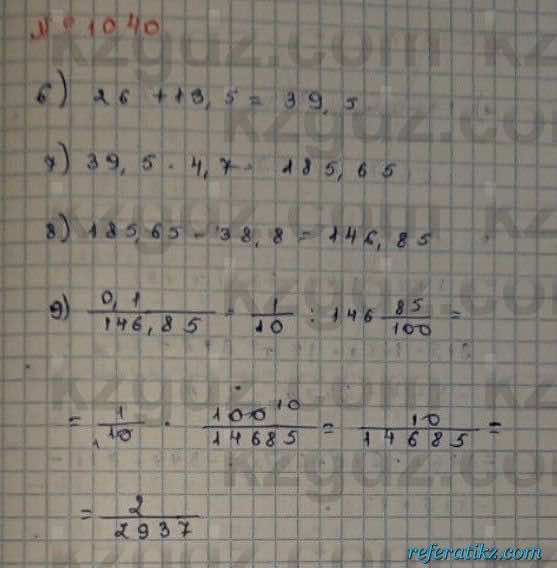 № 1040
6) 26 + 13,5 = 39,5
7) 39,5 · 4,7 = 185,65
8) 185,65 - 38,8 = 146,85
9) 0,1/146,85 = 1/10 : 146 85/100 =
= 1/10 · 100/14685 = 10/14685 =
= 2/2937
referatikz.com